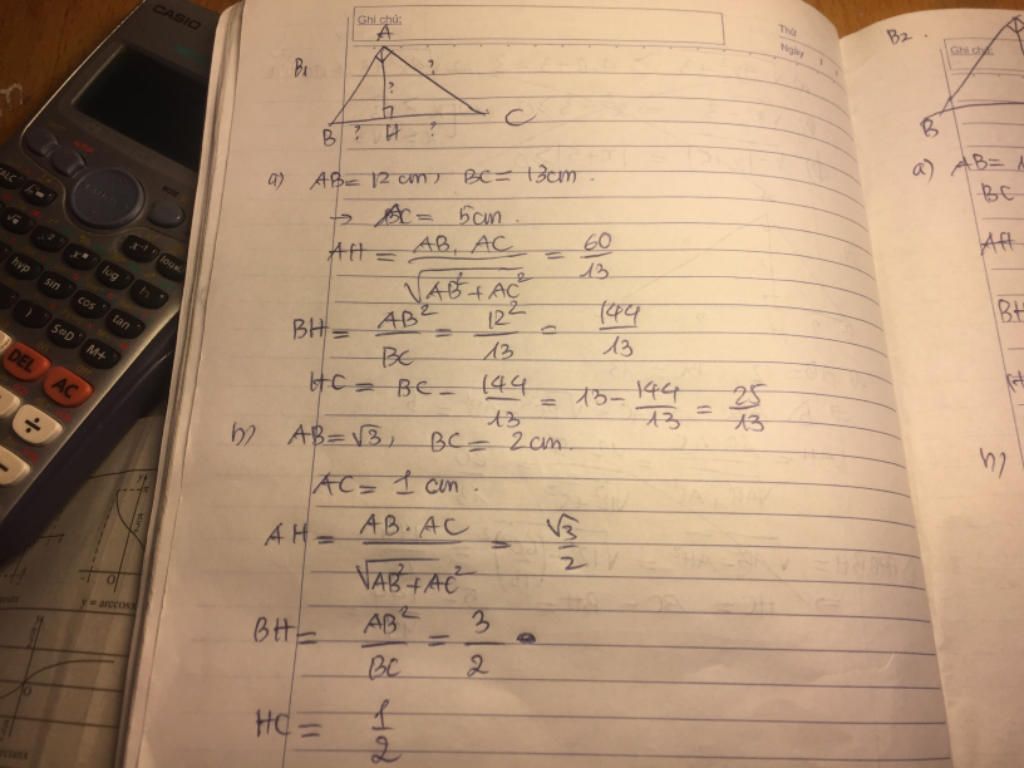 CASIO
Ghi chú:
Thứ
Ngày
B1
A
?
?
B ? H ? C
a) AB = 12 cm, BC = 13cm.
→ AC = 5cm.
AH = AB. AC / √AB²+AC² = 60/13
BH = AB²/BC = 12²/13 = 144/13
HC = BC - 144/13 = 13 - 144/13 = 25/13
b) AB = √3, BC = 2 cm.
AC = 1 cm.
AH = AB.AC / √AB²+AC² = √3/2
BH = AB²/BC = 3/2
HC = 1/2
B2.
Ghi chú:
B
a) AB = 1
BC
AH
BH
b)
hyp
sin
cos
tan
log
x⁻¹
x²
S⇔D
M+
DEL
AC
÷
y = arccosx